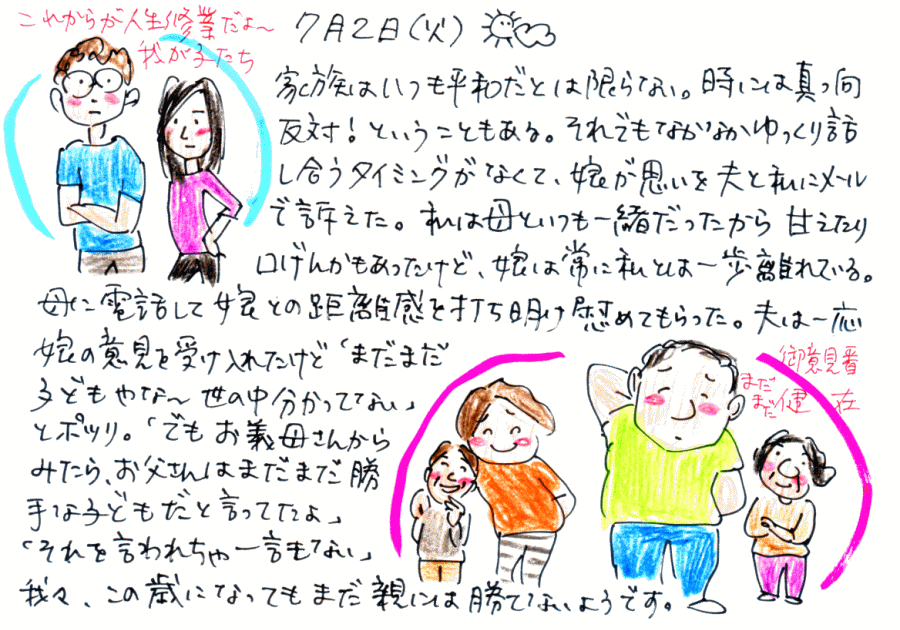 これからが人生修業だよ〜
我が子たち
7月2日(火)
家族はいつも平和だとは限らない。時には真っ向
反対！ということもある。それでもなかなかゆっくり話
し合うタイミングがなくて、娘が思いを夫と私にメール
で訴えた。私は母といつも一緒だったから甘えたり
口げんかもあったけど、娘は常に私とは一歩離れている。
母に電話して娘との距離感を打ち明け慰めてもらった。夫は一応
娘の意見を受け入れたけど「まだまだ
子どもやな〜世の中分かってない」
とポツリ。「でもお義母さんから
みたら、お父さんはまだまだ勝
手な子どもだと言ってたよ」
「それを言われちゃ一言もない」
我々、この歳になってもまだ親には勝てないようです。
御意見番
まだまだ健在